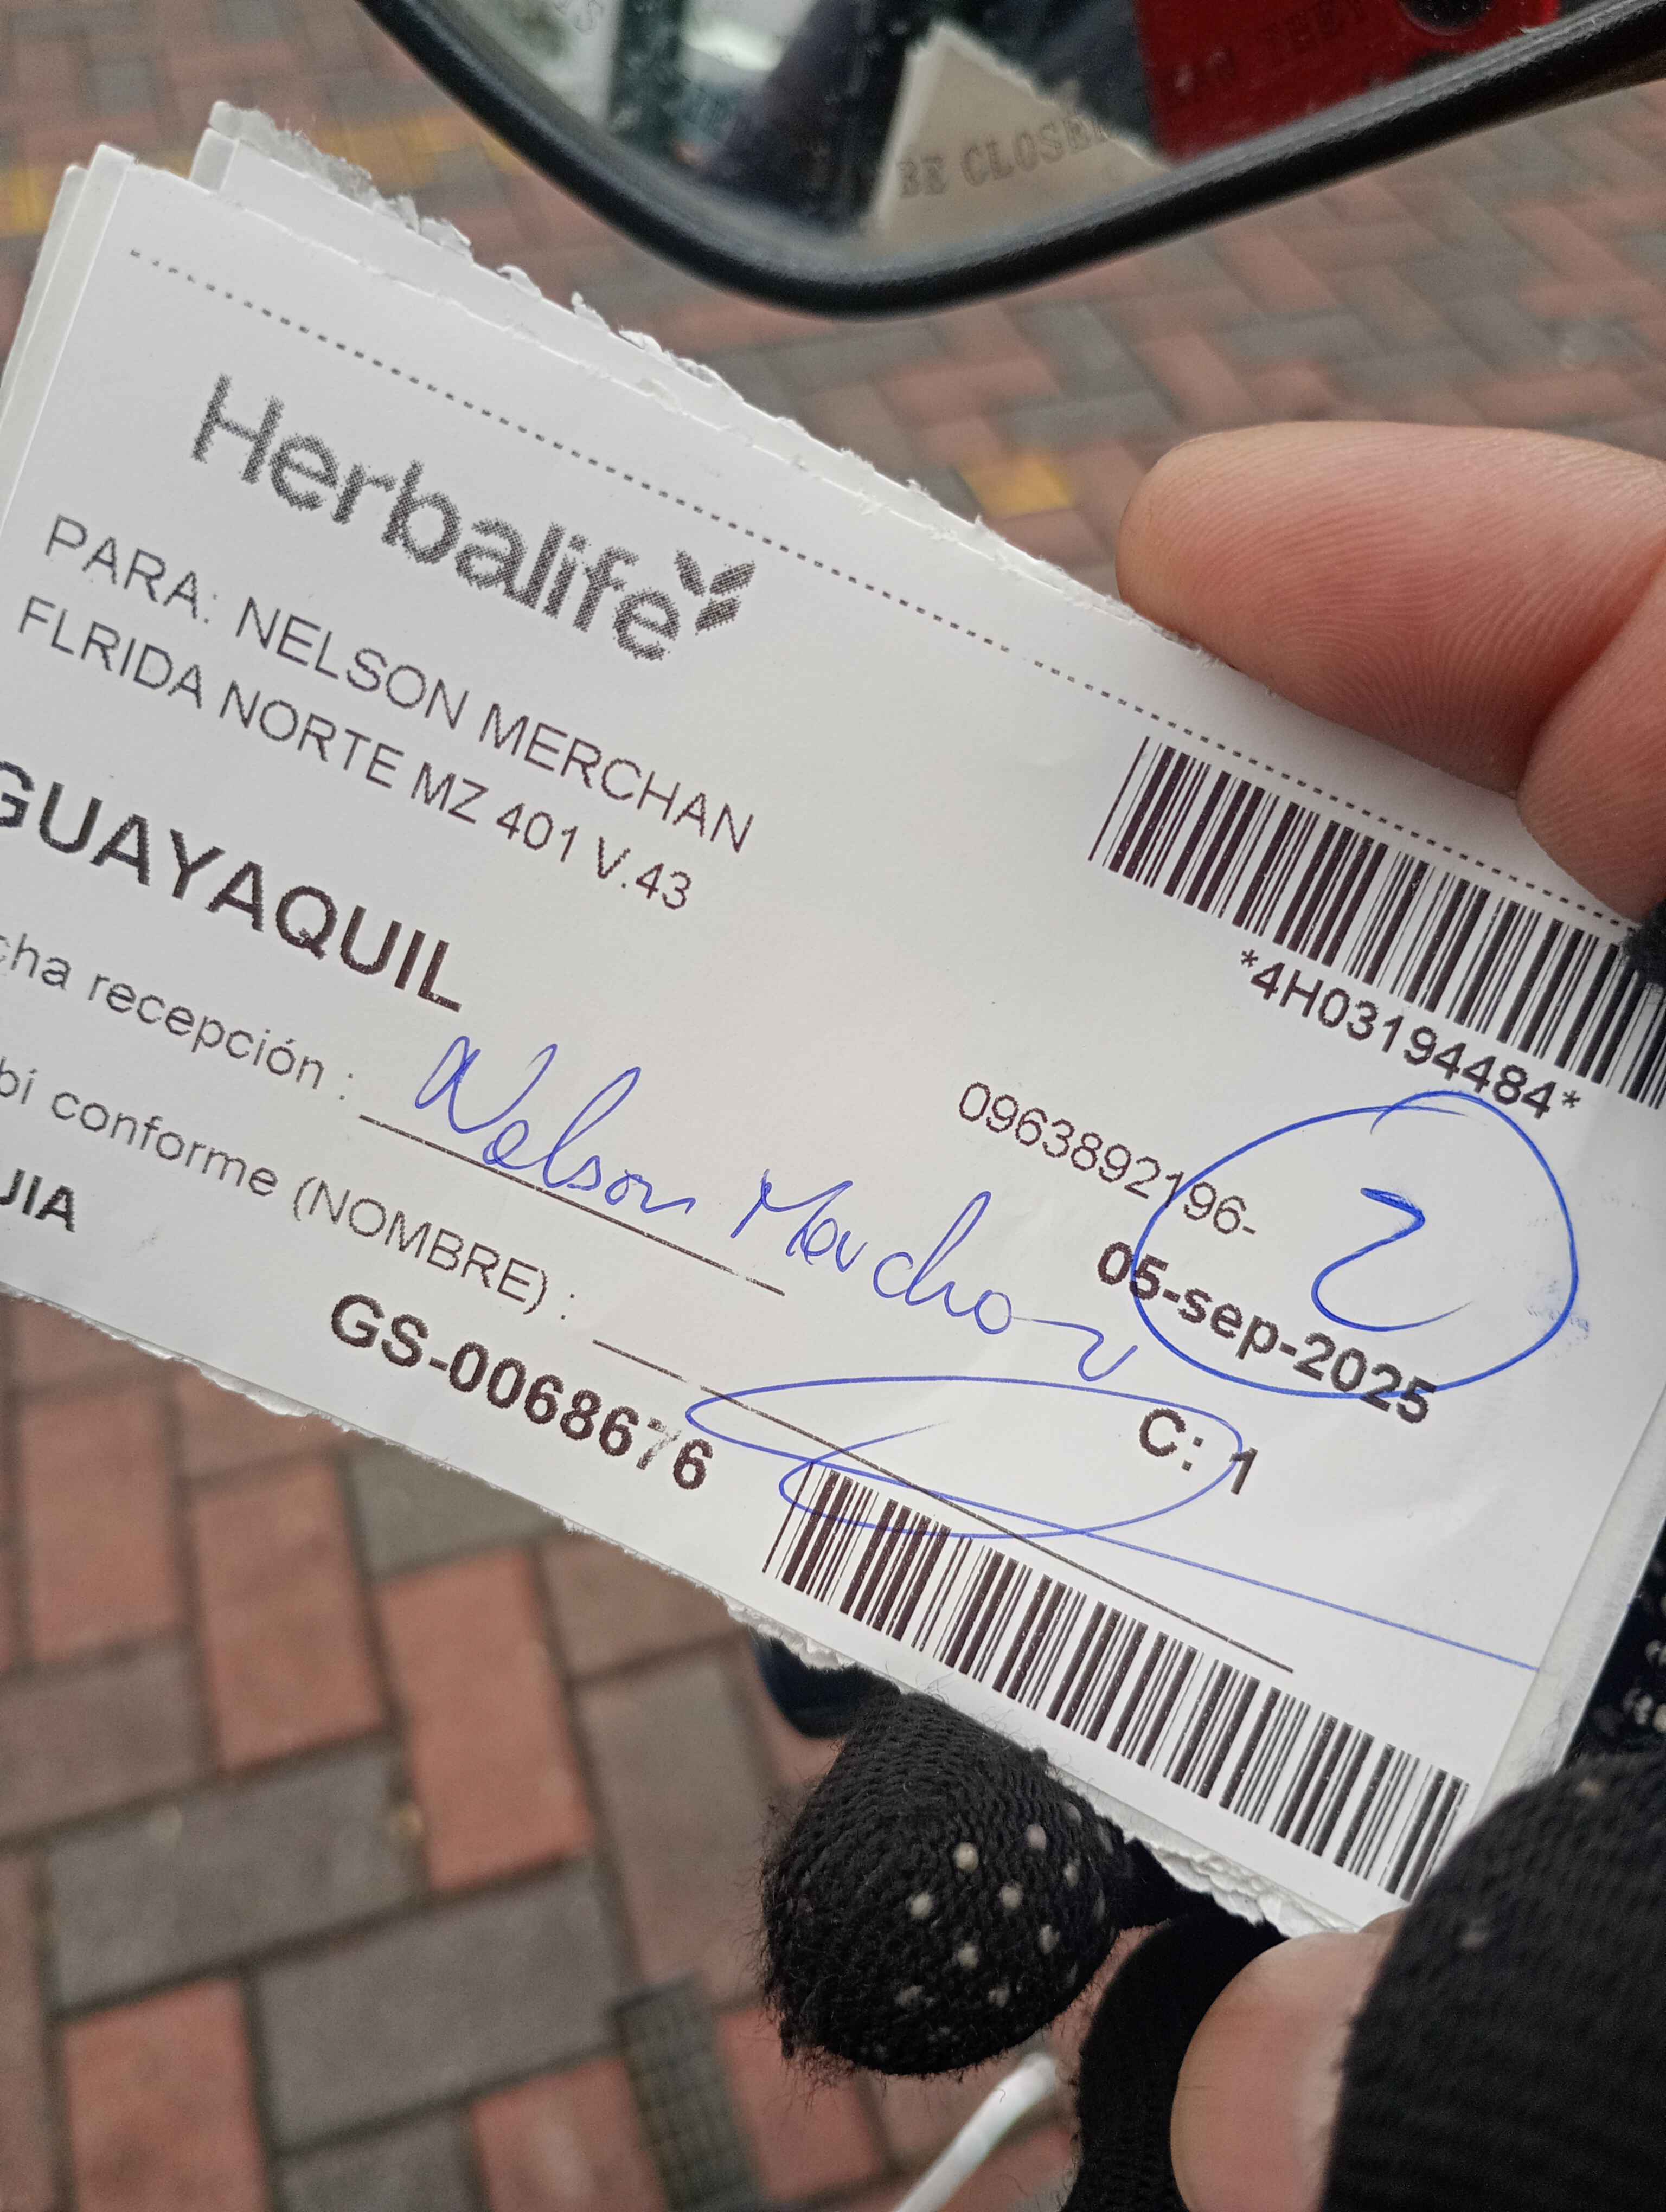 BE CLOSER
Herbalife
PARA: NELSON MERCHAN
FLRIDA NORTE MZ 401 V.43
GUAYAQUIL
*4H03194484*
0963892196-
2
05-sep-2025
C: 1
cha recepción :
Nelson Merchan
bí conforme (NOMBRE) :
UIA
GS-0068676